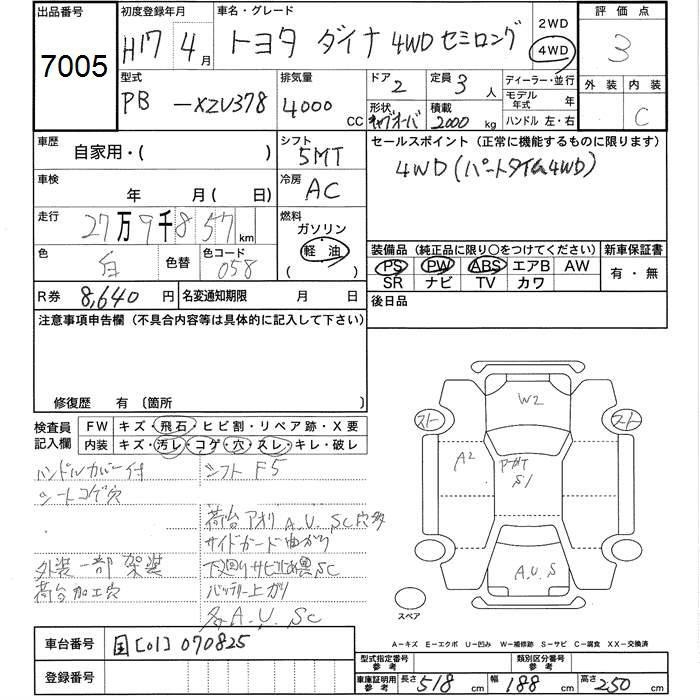 出品番号 7005
初度登録年月 H17年 4月
車名・グレード トヨタ ダイナ 4WD セミロング
2WD
4WD
評価点 3
外装 内装 C
型式 PB -XZU378
排気量 4000 CC
ドア 2
定員 3 人
形状 キャブオーバ
積載 2000 kg
ディーラー・並行
モデル年式 年
ハンドル 左・右
車歴 自家用・( )
シフト 5MT
セールスポイント (正常に機能するものに限ります)
4WD (パートタイム4WD)
車検 年 月 ( 日)
冷房 AC
走行 27万9千857 km
燃料 ガソリン
軽油
( )
色 白 色替 色コード 058
装備品 (純正品に限り○をつけてください)
PS PW ABS エアB AW
SR ナビ TV カワ
新車保証書
有・無
R券 8,640 円 名変通知期限 月 日
後日品
注意事項申告欄 (不具合内容等は具体的に記入して下さい)
修復歴 有 (箇所 )
検査員記入欄
FW キズ・飛石・ヒビ割・リペア跡・X要
内装 キズ・汚レ・コゲ・穴・スレ・キレ・破レ
ハンドルカバー付
シフト F5
シートコゲ穴
荷台アオリ A.U.SC穴多
サイドガード曲がり
外装一部架装
荷台加工穴
バッテリー上ガリ
多A.U.SC
W2
スト スト
A2
S1
A.U.S
スペア
A−キズ E−エクボ U−凹み W−補修跡 S−サビ C−腐食 XX−交換済
車台番号 国[01]070825
登録番号
型式指定番号 参考 類別区分番号 参考
車庫証明用 参考 長さ 518 cm 幅 188 cm 高さ 250 cm